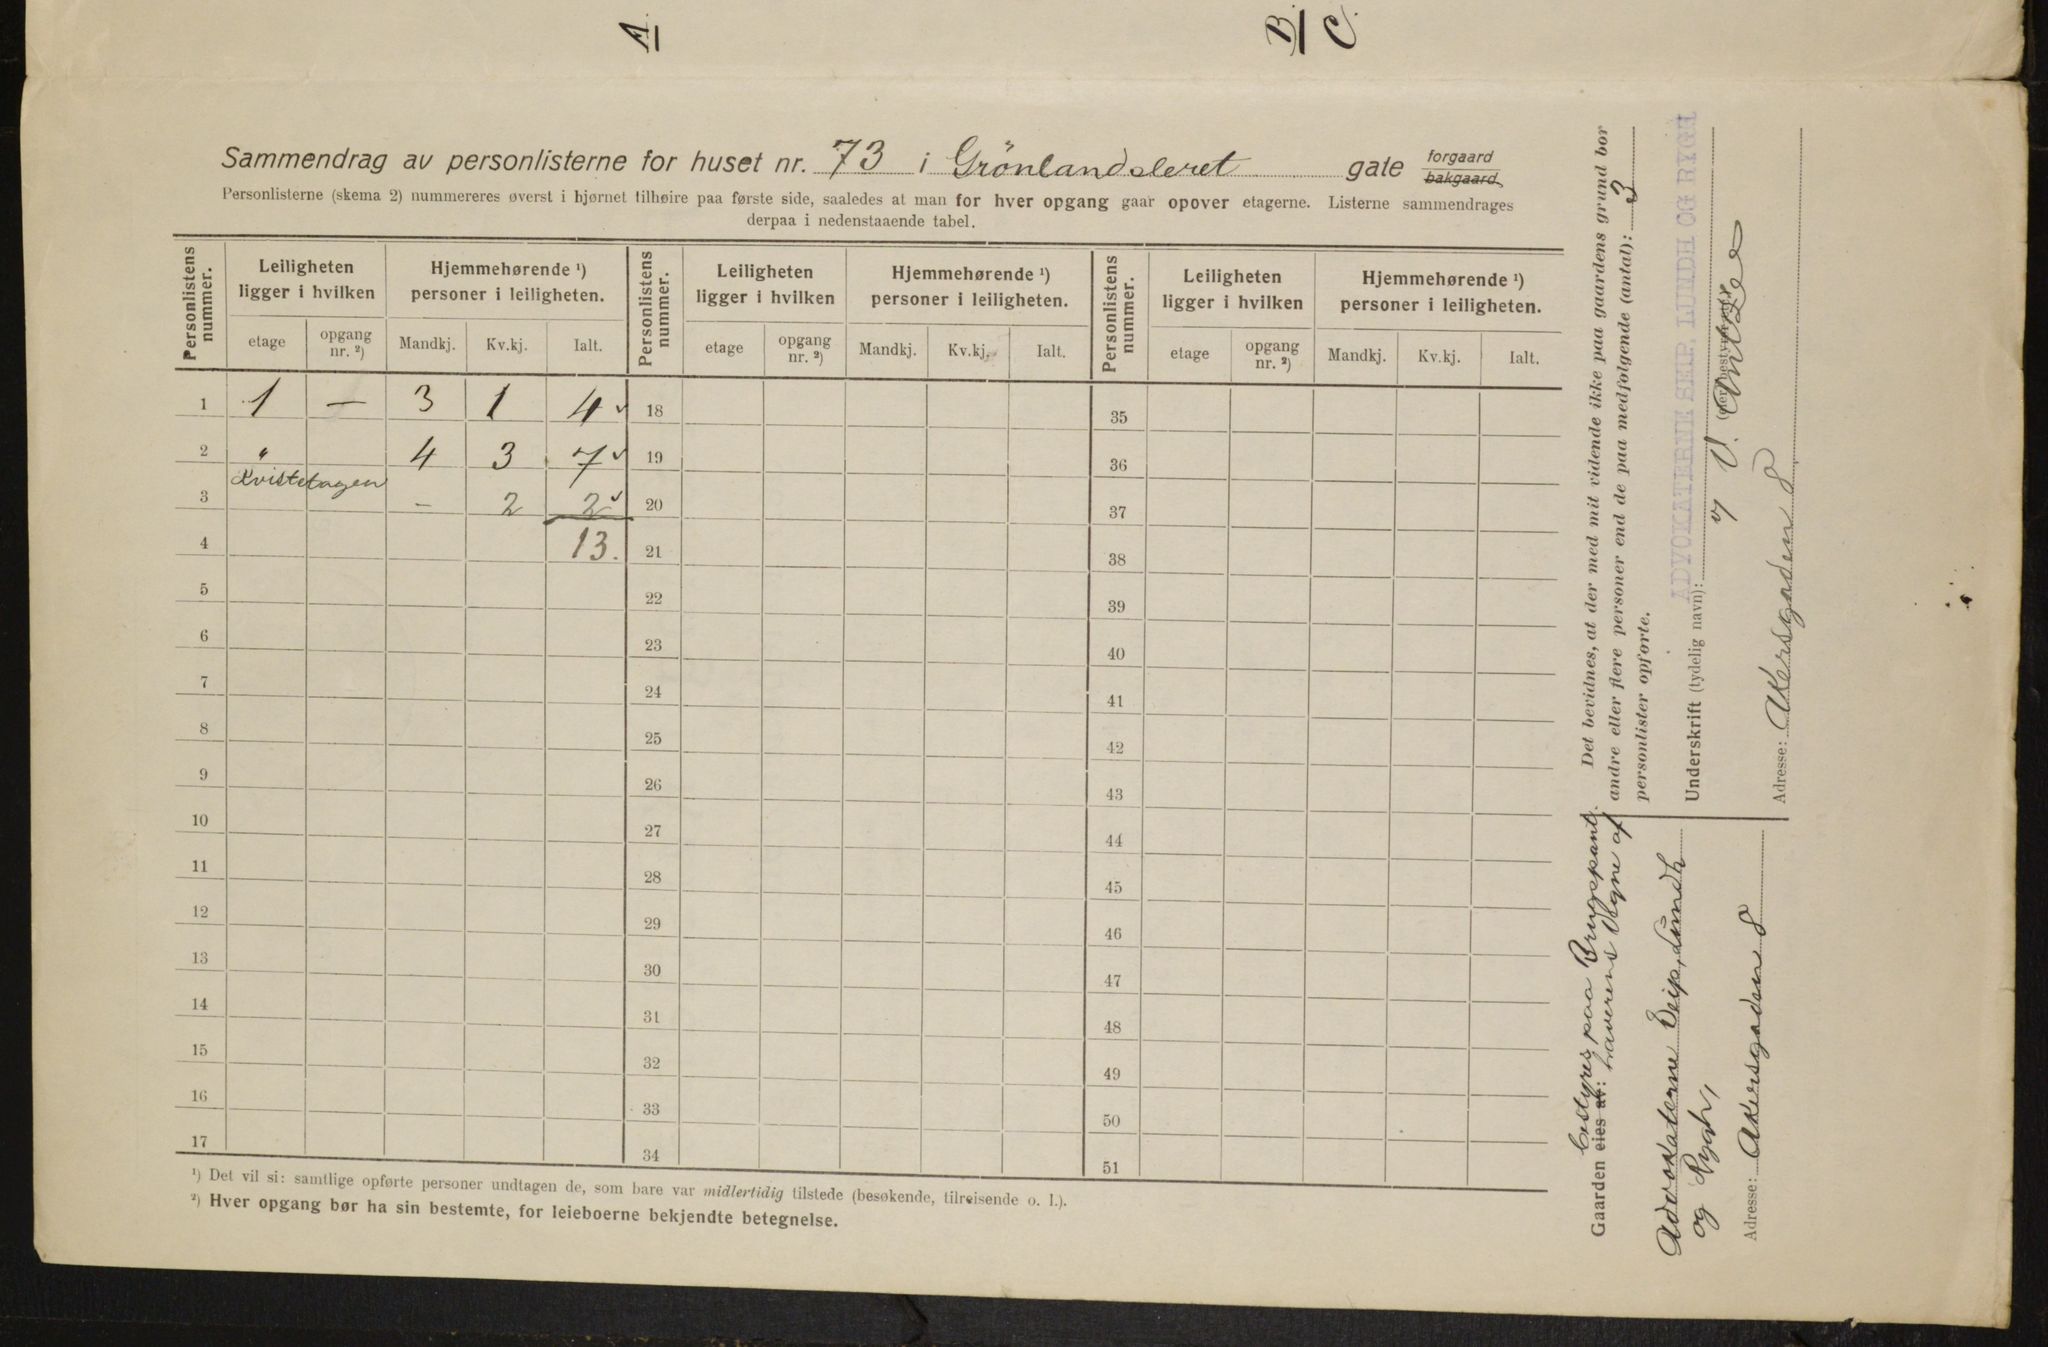 A
B C
Sammendrag av personlisterne for huset nr. 73 i Grönlandsleret gate forgaard bakgaard
Personlisterne (skema 2) nummereres øverst i hjørnet tilhøire paa første side, saaledes at man for hver opgang gaar opover etagerne. Listerne sammendrages
derpaa i nedenstaaende tabel.
Personlistens nummer. Leiligheten ligger i hvilken Hjemmehørende ¹) personer i leiligheten. Personlistens nummer. Leiligheten ligger i hvilken Hjemmehørende ¹) personer i leiligheten. Personlistens nummer. Leiligheten ligger i hvilken Hjemmehørende ¹) personer i leiligheten.
etage opgang nr. ²) Mandkj. Kv.kj. Ialt. etage opgang nr. ²) Mandkj. Kv.kj. Ialt. etage opgang nr. ²) Mandkj. Kv.kj. Ialt.
1 1 — 3 1 4 18 35
2 " 4 3 7 19 36
3 Kvistetagen — 2 2 20 37
4 13. 21 38
5 22 39
6 23 40
7 24 41
8 25 42
9 26 43
10 27 44
11 28 45
12 29 46
13 30 47
14 31 48
15 32 49
16 33 50
17 34 51
¹) Det vil si: samtlige opførte personer undtagen de, som bare var midlertidig tilstede (besøkende, tilreisende o. l.).
²) Hver opgang bør ha sin bestemte, for leieboerne bekjendte betegnelse.
Det bevidnes, at der med mit vidende ikke paa gaardens grund bor
andre eller flere personer end de paa medfølgende (antal): 3
personlister opførte.
ADVOKATERNE SEIP, LUNDH OG RYGH
Underskrift (tydelig navn): V.
Adresse: Akersgaden 8
bestyres paa Brugspant
Gaarden eies av: haverens Vegne af
Advokaterne Seip, Lundh
og Rygh,
Adresse: Akersgaden 8